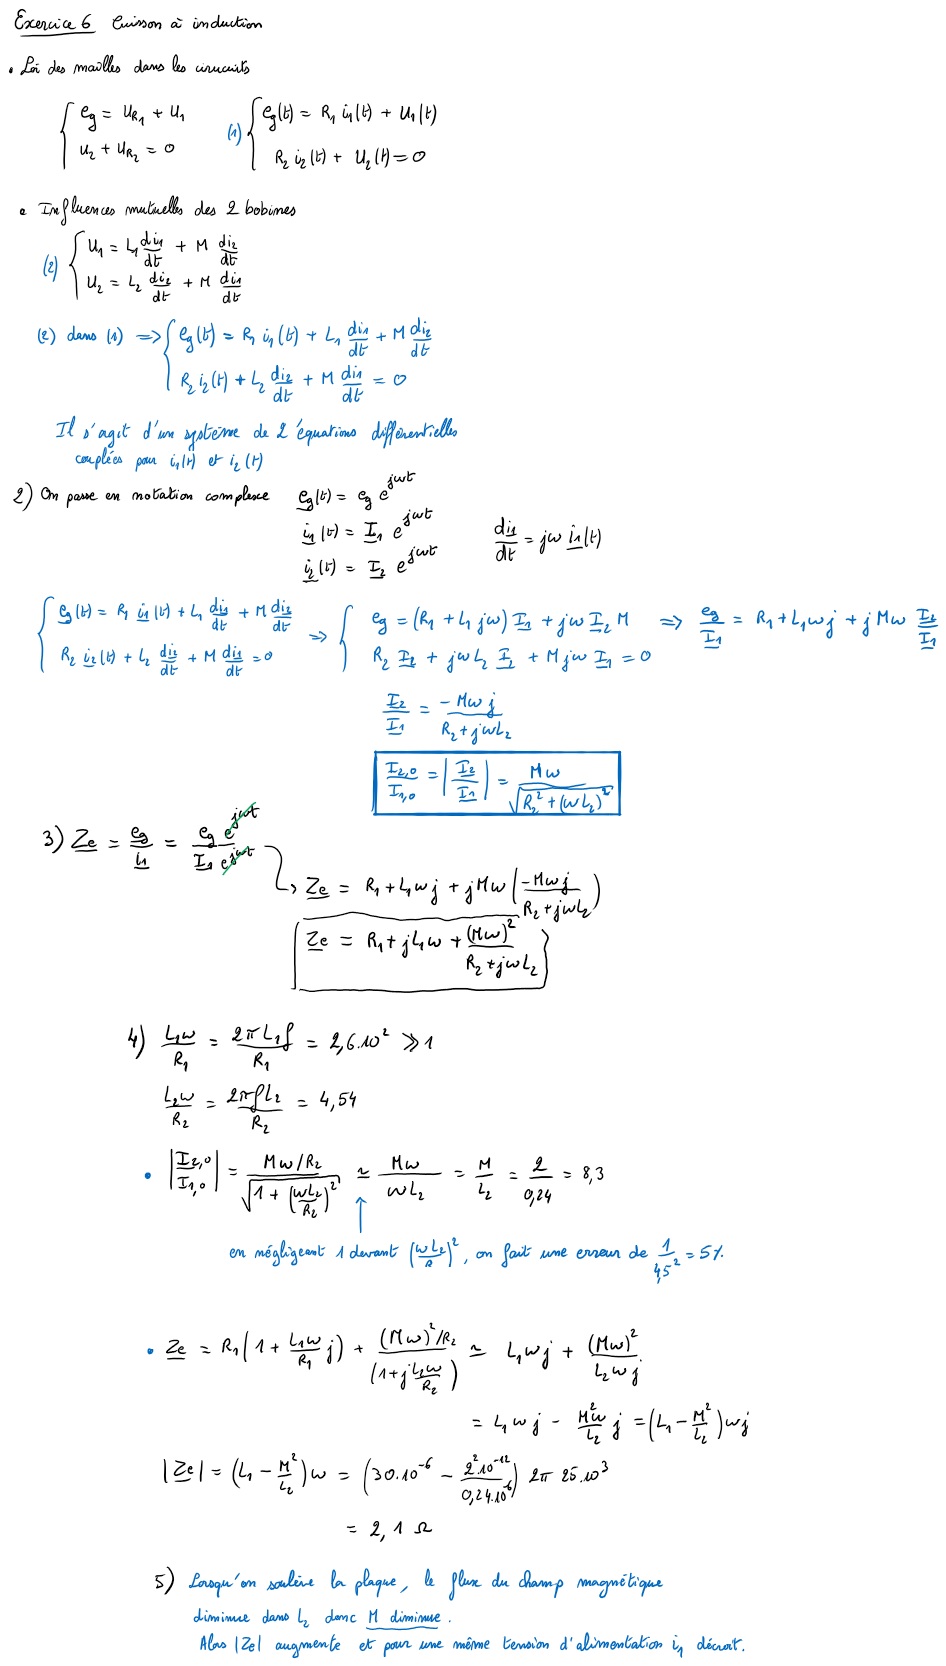 Exercice 6 Cuisson à induction
• Loi des mailles dans les circuits
{ eg = UR1 + U1
u2 + UR2 = 0
(1) { eg(t) = R1 i1(t) + U1(t)
R2 i2(t) + U2(t) = 0
• Influences mutuelles des 2 bobines
(2) { U1 = L1 di1/dt + M di2/dt
U2 = L2 di2/dt + M di1/dt
(2) dans (1) => { eg(t) = R1 i1(t) + L1 di1/dt + M di2/dt
R2 i2(t) + L2 di2/dt + M di1/dt = 0
Il s'agit d'un système de 2 équations différentielles
couplées pour i1(t) et i2(t)
2) On passe en notation complexe eg(t) = eg e^jωt
i1(t) = I1 e^jωt di1/dt = jω i1(t)
i2(t) = I2 e^jωt
{ eg(t) = R1 i1(t) + L1 di1/dt + M di2/dt => { eg = (R1 + L1 jω) I1 + jω I2 M => eg/I1 = R1 + L1 ω j + j M ω I2/I1
R2 i2(t) + L2 di2/dt + M di1/dt = 0 R2 I2 + jω L2 I2 + M jω I1 = 0
I2/I1 = -Mω j/(R2 + jωL2)
I2,0/I1,0 = |I2/I1| = Mω/√(R2² + (ωL2)²)
3) Ze = eg/i1 = eg e^jωt/I1 e^jωt
→ Ze = R1 + L1 ω j + j M ω (-Mωj/(R2 + jωL2))
Ze = R1 + j L1 ω + (Mω)²/(R2 + jωL2)
4) L1ω/R1 = 2π L1 f/R1 = 2,6.10² ≫ 1
L2ω/R2 = 2π f L2/R2 = 4,54
• |I2,0/I1,0| = (Mω/R2)/√(1 + (ωL2/R2)²) ≃ Mω/ωL2 = M/L2 = 2/0,24 = 8,3
en négligeant 1 devant (ωL2/R)², on fait une erreur de 1/4,5² = 5%.
• Ze = R1 (1 + L1ω/R1 j) + ((Mω)²/R2)/(1 + j L2ω/R2) ≃ L1 ω j + (Mω)²/L2 ω j
= L1 ω j - M²ω/L2 j = (L1 - M²/L2) ω j
|Ze| = (L1 - M²/L2) ω = (30.10⁻⁶ - 2² 10⁻¹²/0,24.10⁻⁶) 2π 25.10³
= 2,1 Ω
5) Lorsqu'on soulève la plaque, le flux du champ magnétique
diminue dans L2 donc M diminue.
Alors |Ze| augmente et pour une même tension d'alimentation i1 décroit.